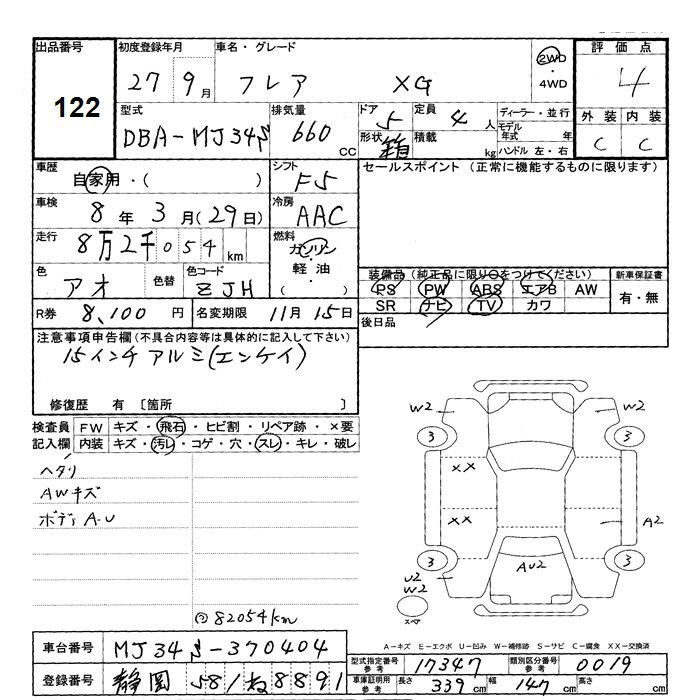 出品番号 初度登録年月 車名・グレード ②WD 評価点
122 27 9月 フレア XG ・4WD 4
型式 排気量 ドア 5 定員 4人 ディーラー・並行 外装 内装
DBA-MJ34S 660 CC 形状 箱 積載 kg モデル年式 年 C C
ハンドル 左・右
車歴 自家用・( ) シフト F5 セールスポイント (正常に機能するものに限ります)
車検 8年 3月(29日) 冷房 AAC
走行 8万2千054km 燃料 ガソリン・軽油・( )
色 アオ 色替 色コード ZJH 装備品(純正品に限り○をつけてください) 新車保証書
PS PW ABS エアB AW 有・無
SR ナビ TV カワ
R券 8,100円 名変期限 11月15日 後日品
注意事項申告欄(不具合内容等は具体的に記入して下さい)
15インチアルミ(エンケイ)
修復歴 有 〔箇所 〕
検査員 FW キズ・飛石・ヒビ割・リペア跡・×要
記入欄 内装 キズ・汚レ・コゲ・穴・スレ・キレ・破レ
ヘタリ
AWキズ
ボディA.U
82054km
W2 W2
3 3
XX
XX A2
3 3
U2 AU2
W2
スペア
A-キズ E-エクボ U-凹み W-補修跡 S-サビ C-腐食 XX-交換済
車台番号 MJ34S-370404 型式指定番号 参考 17347 類別区分番号 参考 0019
登録番号 静岡 581 ね 8891 車庫証明用 参考 長さ 339cm 幅 147cm 高さ cm